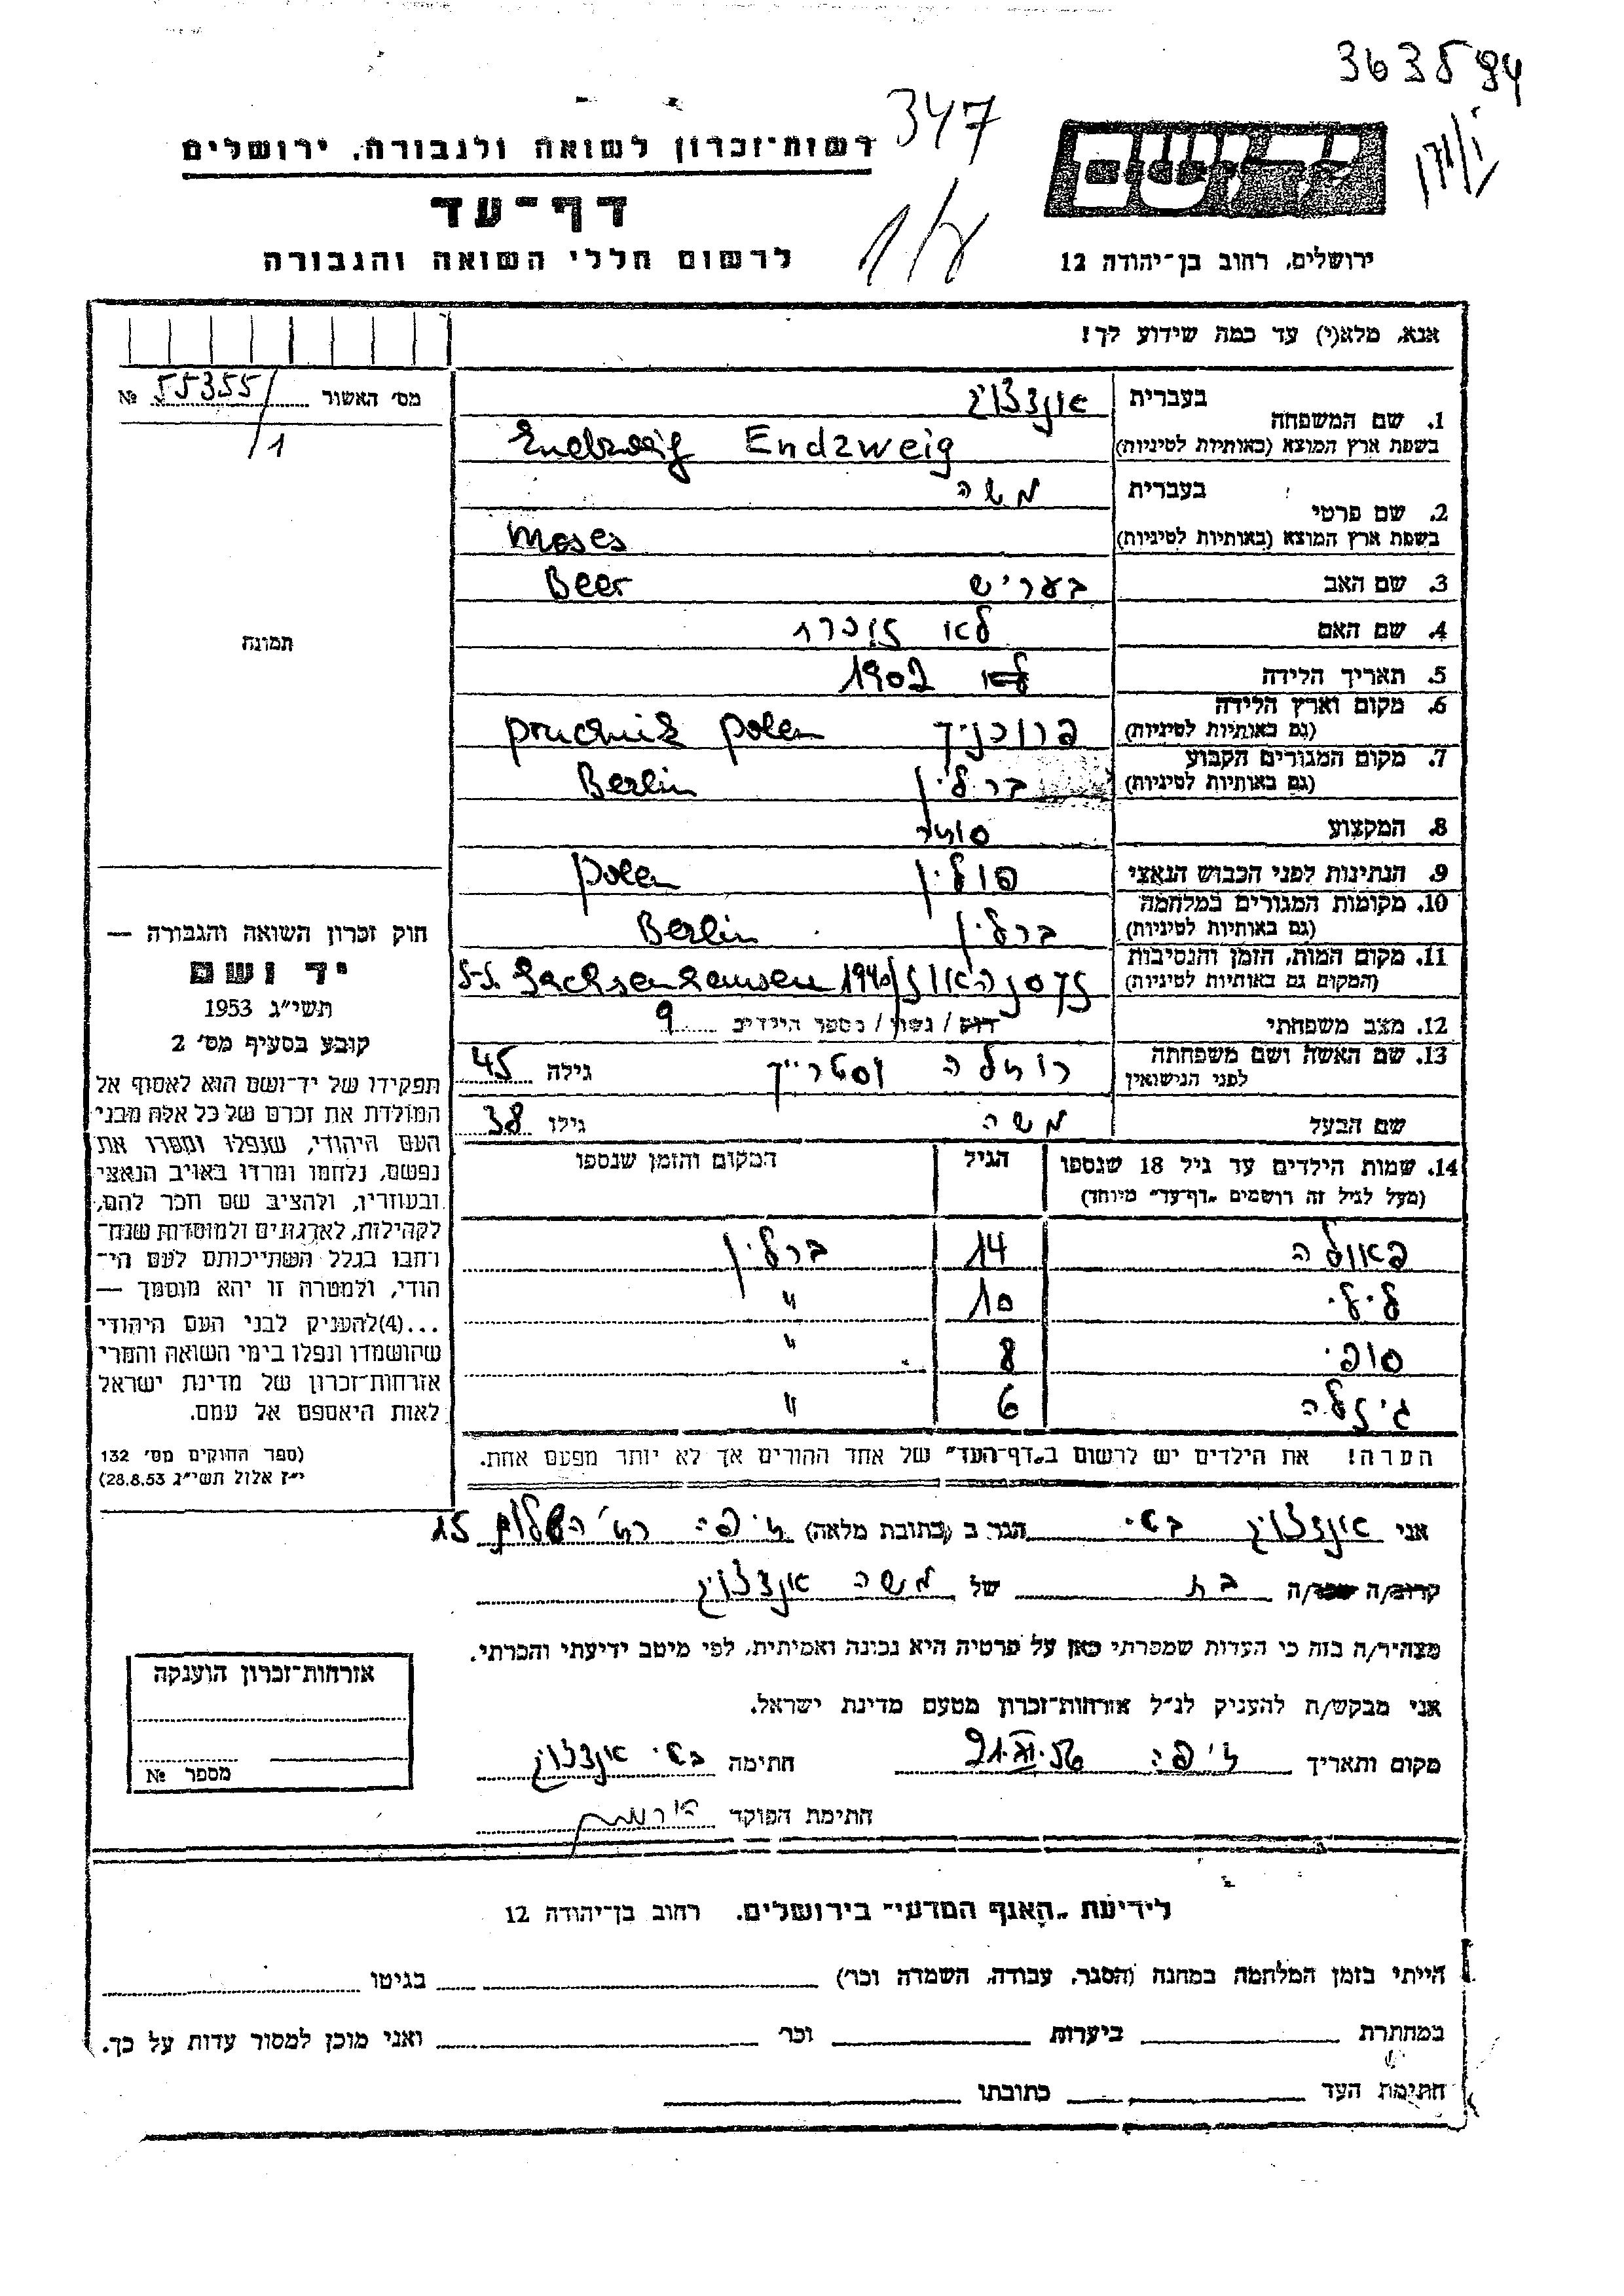 363594
347
רשות־זכרון לשואה ולגבורה, ירושלים
יד ושם
דף־עד
1/
לרשום חללי השואה והגבורה
ירושלים, רחוב בן־יהודה 12
אנא, מלא(י) עד כמה שידוע לך!
מס׳ האשור 55355/1 №
1. שם המשפחה
בעברית אנדצווייג
בשפת ארץ המוצא (באותיות לטיניות) Endzweig Endzweig
2. שם פרטי
בעברית משה
בשפת ארץ המוצא (באותיות לטיניות) Moses
3. שם האב בעריש Beer
4. שם האם לא זוכרת
5. תאריך הלידה 1902
6. מקום וארץ הלידה
(גם באותיות לטיניות) פרוכניק Pruchnik Polen
7. מקום המגורים הקבוע
(גם באותיות לטיניות) ברלין Berlin
8. המקצוע סוחר
9. הנתינות לפני הכבוש הנאצי פולין Polen
10. מקומות המגורים במלחמה
(גם באותיות לטיניות) ברלין Berlin
11. מקום המות, הזמן והנסיבות
(המקום גם באותיות לטיניות) זקסנהאוזן 1940 Sachsenhausen
12. מצב משפחתי רווק / נשוי / מספר הילדים 9
13. שם האשה ושם משפחתה
לפני הנישואין רוחלה וסטרייך גילה 45
שם הבעל משה גילו 38
תמונה
14. שמות הילדים עד גיל 18 שנספו
(מעל לגיל זה רושמים „דף־עד" מיוחד)
הגיל
המקום והזמן שנספו
פאולה 14 ברלין
לילי 10 "
סופי 8 "
גיזלה 6 "
הערה! את הילדים יש לרשום ב„דף־העד" של אחד ההורים אך לא יותר מפעם אחת.
חוק זכרון השואה והגבורה —
יד ושם
תשי״ג 1953
קובע בסעיף מס׳ 2
תפקידו של יד־ושם הוא לאסוף אל
המולדת את זכרם של כל אלה מבני
העם היהודי, שנפלו ומסרו את
נפשם, נלחמו ומרדו באויב הנאצי
ובעוזריו, ולהציב שם וזכר להם,
לקהילות, לארגונים ולמוסדות שנח־
רחבו בגלל השתייכותם לעם הי־
הודי, ולמטרה זו יהא מוסמך —
...(4)להעניק לבני העם היהודי
שהושמדו ונפלו בימי השואה והמרי
אזרחות־זכרון של מדינת ישראל
לאות היאספם אל עמם.
(ספר החוקים מס׳ 132
י״ז אלול תשי״ג 28.8.53)
אני אנדצווייג בטי הגר ב (כתובת מלאה) חיפה רח׳ השלום 15
קרוב/ה בת של משה אנדצווייג
מצהיר/ה בזה כי העדות שמסרתי כאן על פרטיה היא נכונה ואמיתית, לפי מיטב ידיעתי והכרתי.
אני מבקש/ת להעניק לנ״ל אזרחות־זכרון מטעם מדינת ישראל.
מקום ותאריך חיפה 21.XI.56 חתימה בטי אנדצווייג
חתימת הפוקד
אזרחות־זכרון הוענקה
מספר №
לידיעת „האגף המדעי" בירושלים, רחוב בן־יהודה 12
הייתי בזמן המלחמה במחנה (הסגר, עבודה, השמדה וכו׳) בגיטו
במחתרת ביערות וכו׳ ואני מוכן למסור עדות על כך.
חתימת העד כתובתו